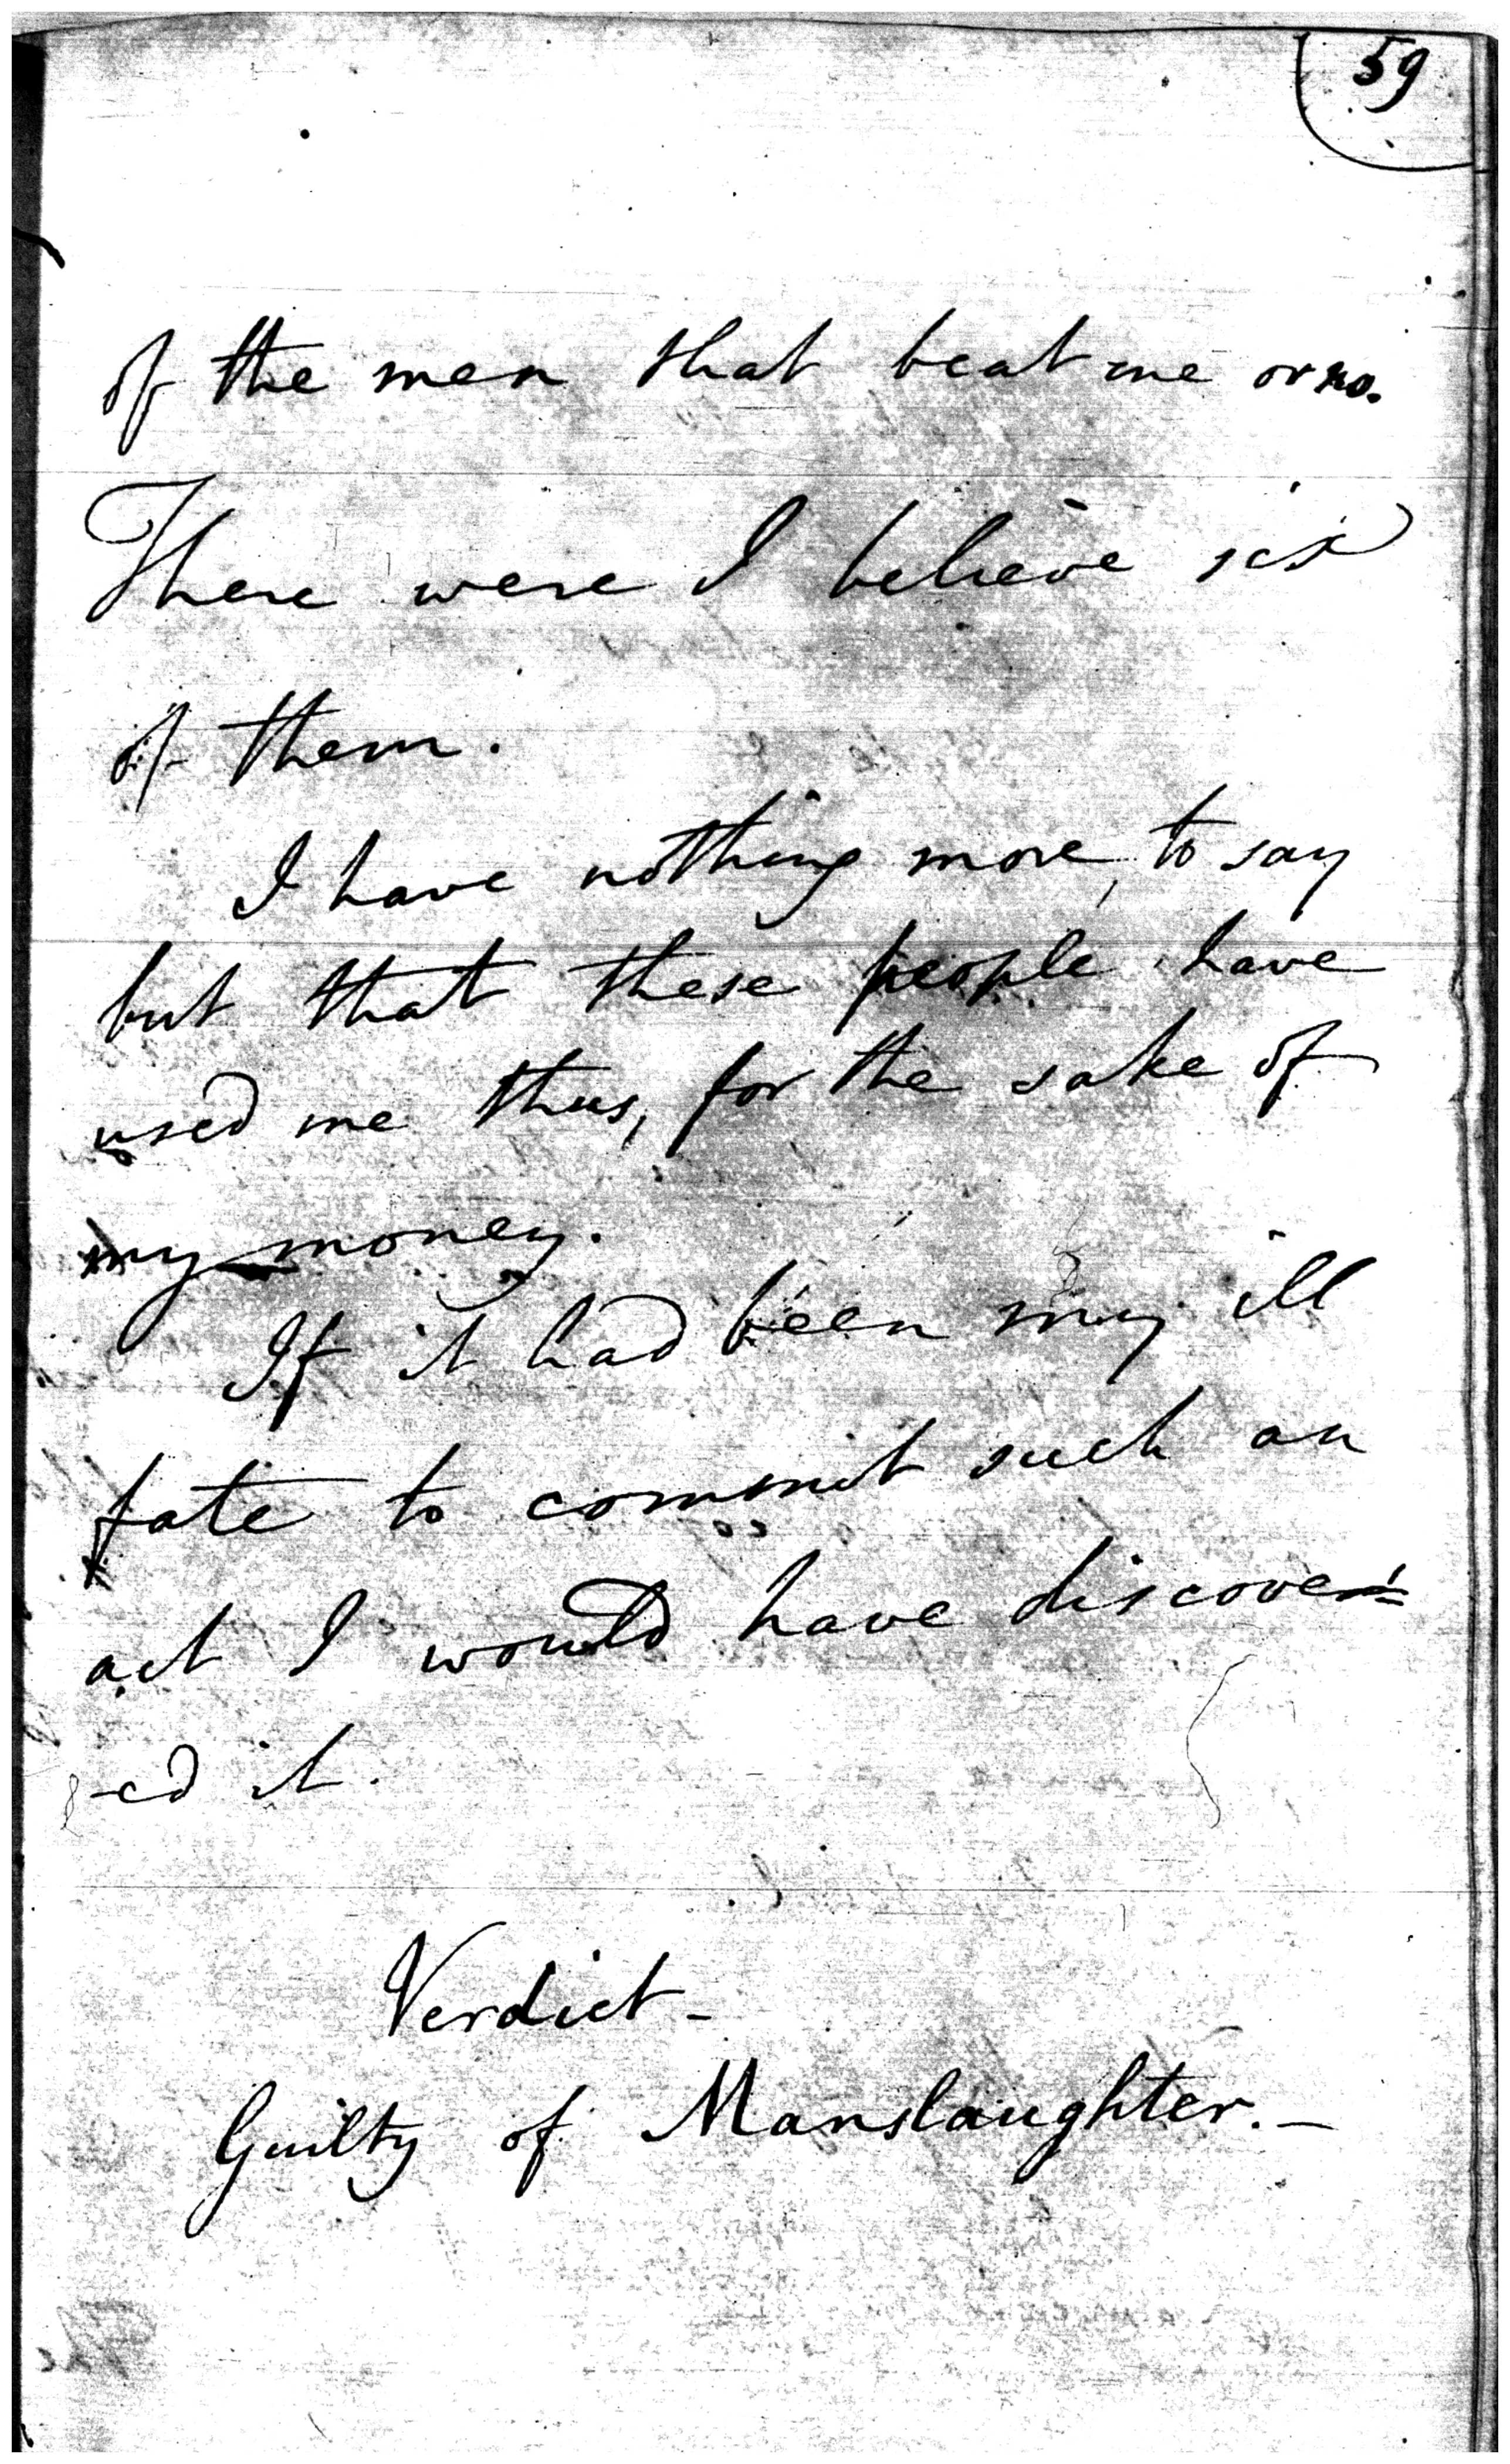 59
of the men that beat me or no.
There were I believe six
of them.
I have nothing more, to say
but that these people have
used me thus, for the sake of
my money.
If it had been my ill
fate to commit such an
act I would have discover=
-ed it.
Verdict -
Guilty of Manslaughter. -